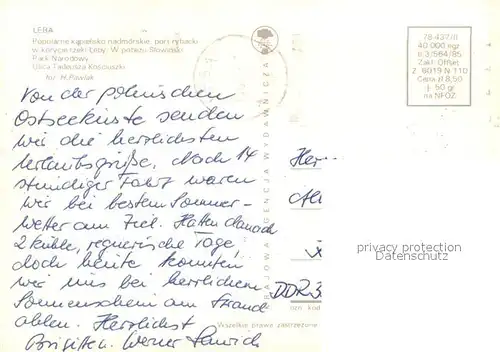 ŁEBA
Popularne kąpielisko nadmorskie, port rybacki
w korycie rzeki Łeby. W pobliżu Słowiński
Park Narodowy
Ulica Tadeusza Kościuszki
fot. H. Pawlak
78-437/II
40 000 egz
n 3/564/85
Zakł. Offset.
Z. 6019 N-110
Cena zł 8,50
+ 50 gr
na NFOZ
KRAJOWA AGENCJA WYDAWNICZA
Von der polnischen
Ostseeküste senden
wir die herrlichsten
Urlaubsgrüße. Nach 14
stündiger Fahrt waren
wir bei bestem Sommer-
wetter am Ziel. Hatten danach
2 kühle, regnerische Tage,
doch heute konnten
wir uns bei herrlichem
Sonnenschein am Strand
aalen. Herzlichst
Brigitte u. Werner
Herr
DDR
privacy protection
DELCAMPE SERVICE
kod
Wszelkie prawa zastrzeżone